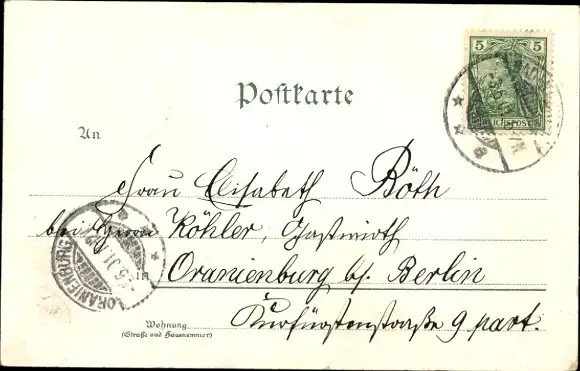 5 5
REICHSPOST
Postkarte
An
Frau Elisabeth Röth
bei Herrn Köhler, Gastwirth
in Oranienburg b/. Berlin
Wohnung
(Straße und Hausnummer)
Kurfürstenstraße 9 part.
ORANIENBURG